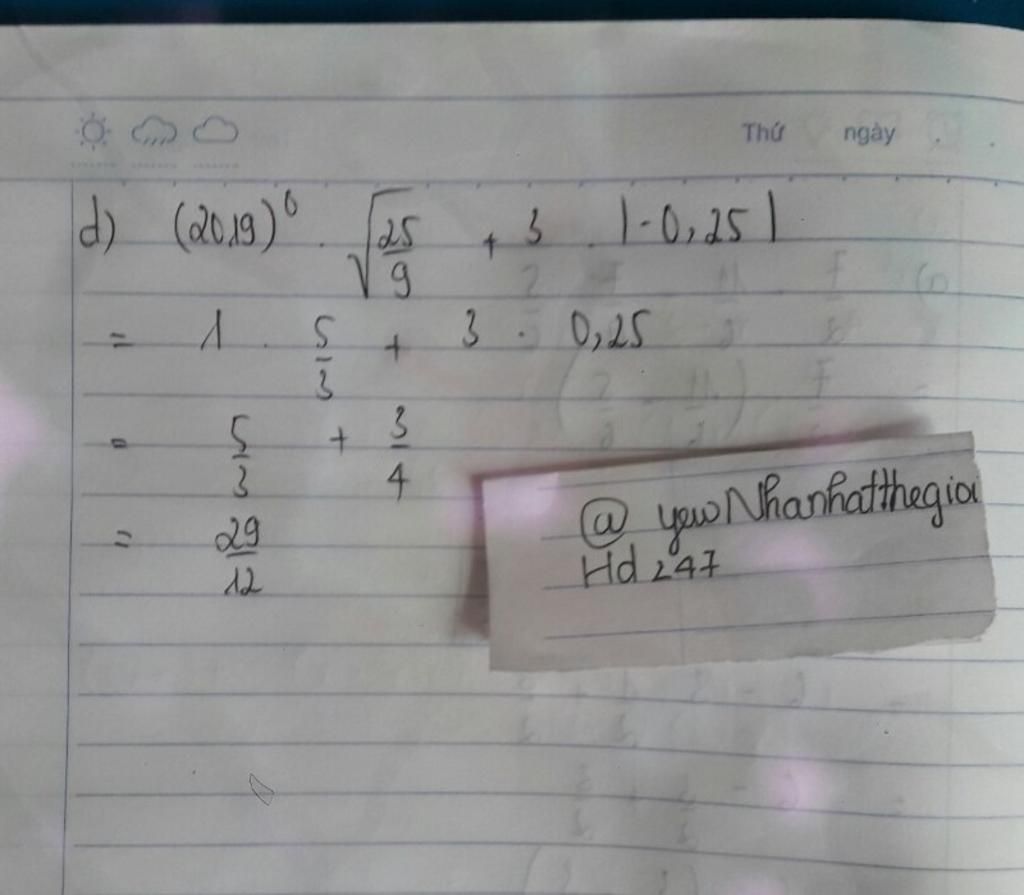 Thứ ngày .
d) (20,19)⁰ . √(25/9) + 3 . |-0,25|
= 1 . 5/3 + 3 . 0,25
= 5/3 + 3/4
= 29/12
@ yewNhanhatthegioi
Hd 247